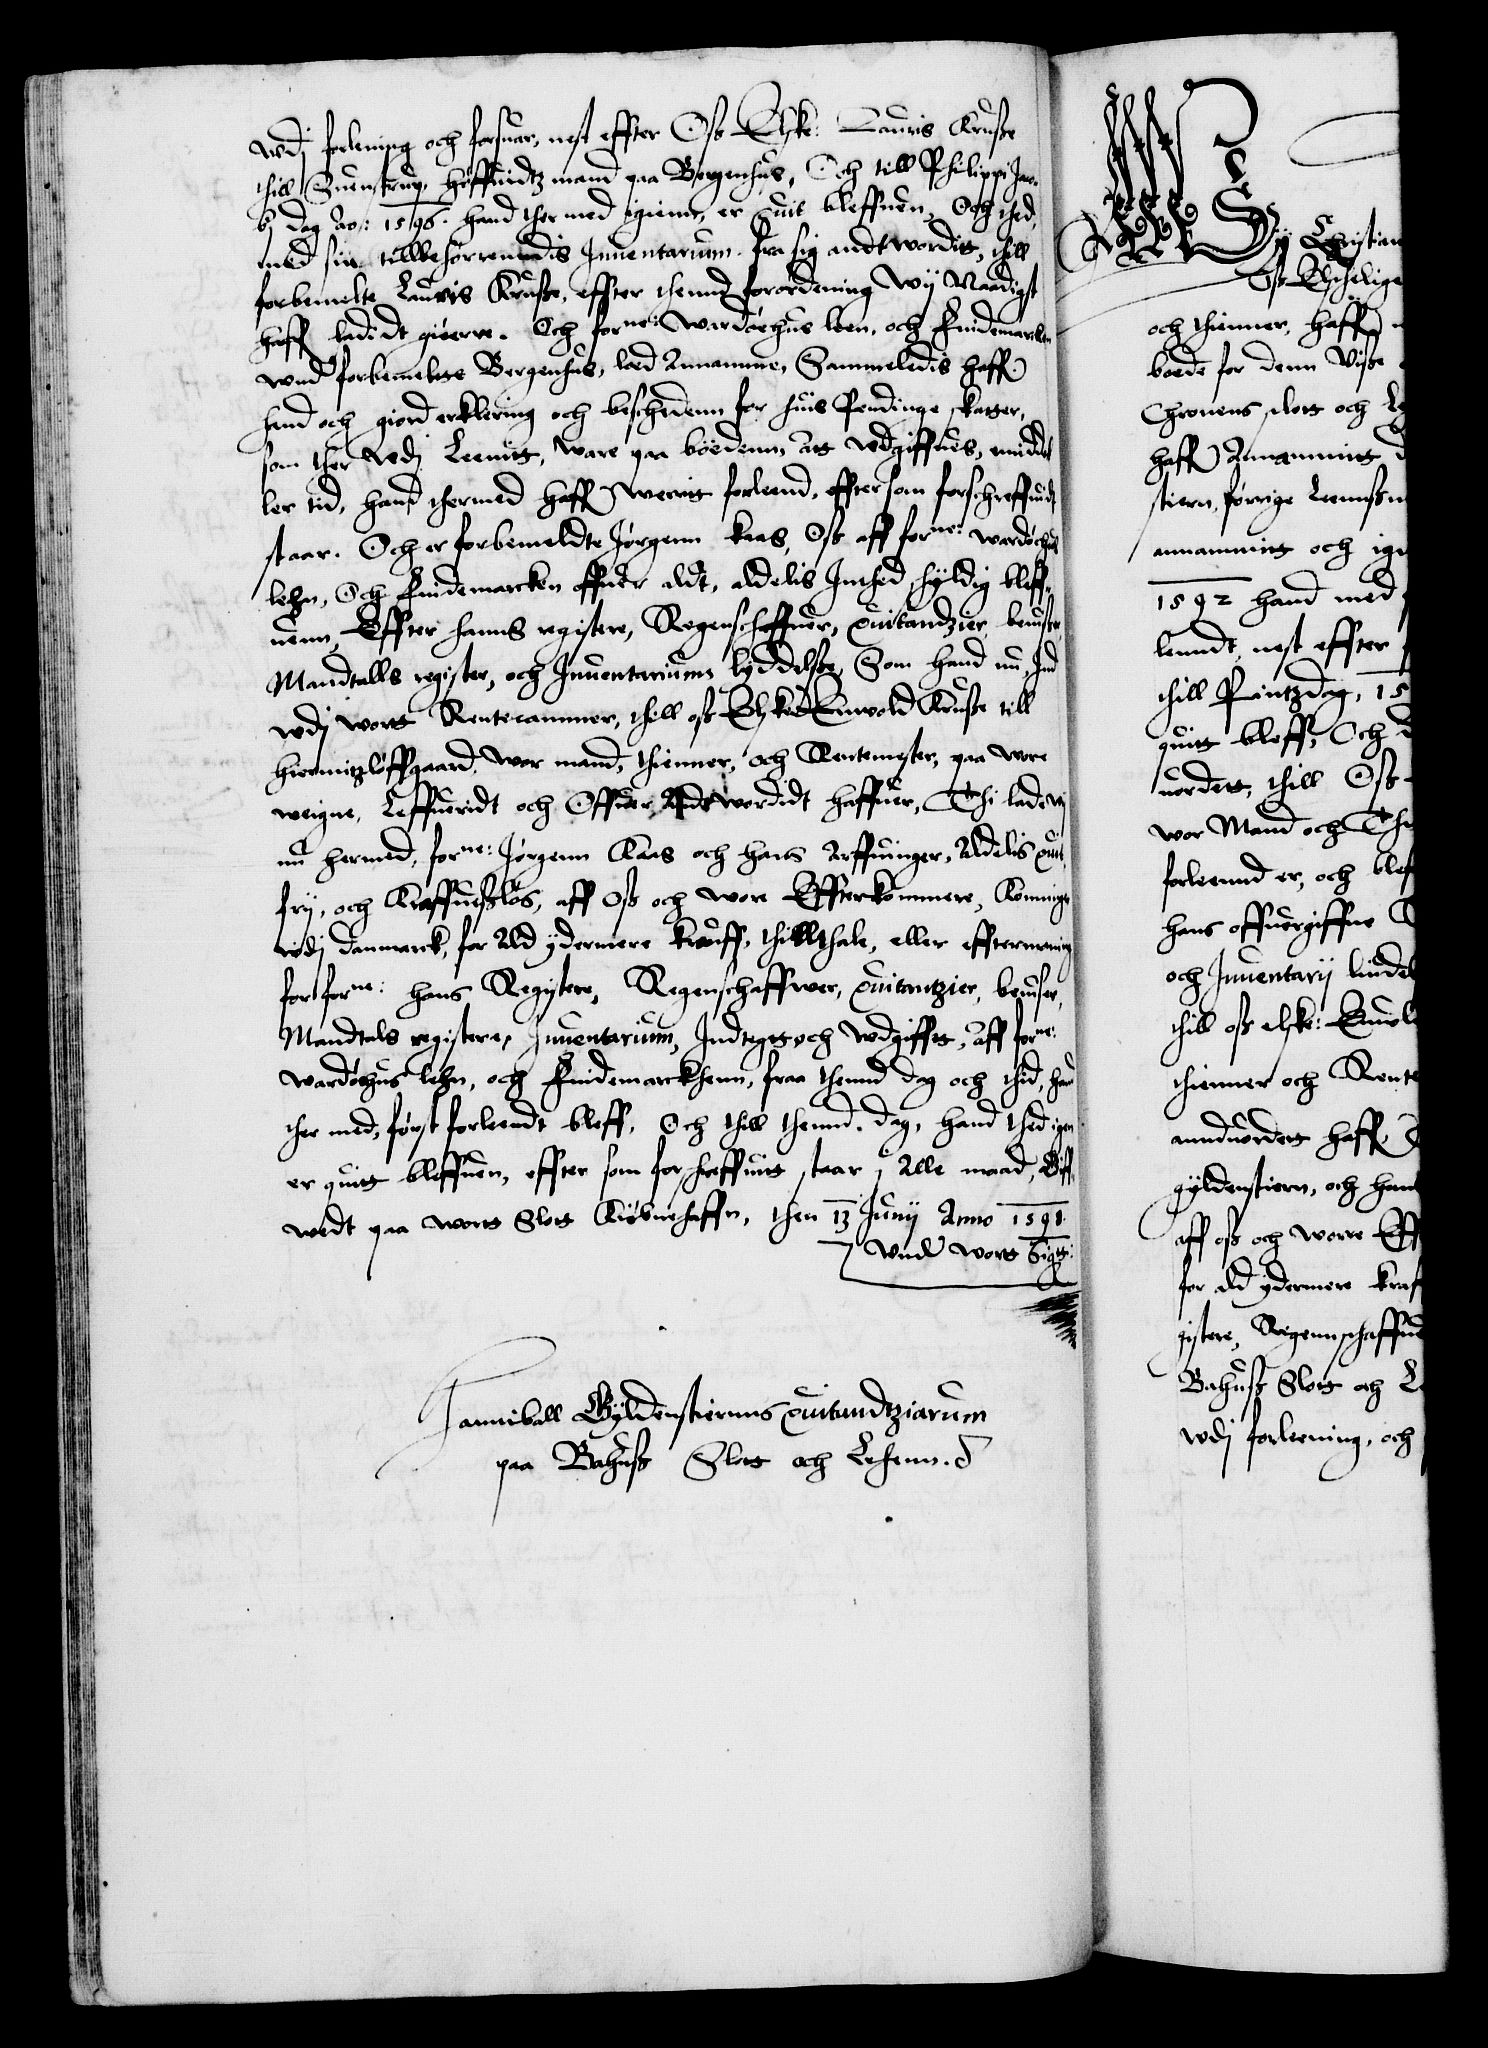 wdj forlening och forsuar, nest effter Oß Elske: Lauris Kruße
thill Suenstrup, höffuidtz mand paa Bergenhus, Och till Philippi Jaco-
bj dag Ao: 1596. hand ther med igienn, er quit bleffuen, Och thed,
med sin tillbehörrendis Inuentarium. fra sig andtwordit, thill
forbemelte Lauris Kruße, effter thend forordening Wij Naadigst
haff ladidt giöere. Och forne: Wardöehus leen, och Findemarcken
wnd forbemelte Bergenhus, lad Annamme, Sammeledis haffr
hand och giord erklering och beschedenn for huis Pendinge skatter,
som ther wdj Leenitt, ware paa böedenn att wdgiffues, middel
ler tid, hand thermed haffr werrit forlend, effter som forschreffuidt
staar. Och er forbemeldte Jörgenn Kaas, Oß aff forne: wardöehus
lehn, Och Findemarcken offuer aldt, aldelis Inthed skyldig bleff-
uenn, Effter hanns registere, Regenschaffuer, quitandzier, beuißer,
Mandtalls register, och Inuentariums lyddelße, Som hand nu, Ind
wdj wort Rentecammer, thill oß Elsked Enuold Kruße till
hiermitzlöffgaard, wor mand, thienner, och Rentemester, paa wore
weigne, Leffueridt och Offuer Andtwordidt haffuer, Thi lade wij
nu hermed, forne: Jörgenn Kaas och hans Arffuinger, Aldelis quit,
frij, och Kraffueßlös, aff Oß och wore Effterkommere, Konninge
wdj Danmarck, for Ald ydermere krauff, thillthale, eller effterm­aning
for forne: hans Registere, Regenschaffwer, quitantzier, beuißer,
Mandtals registere, Inuentarium, Indtegt och Wdgifft, aff forne:
wardöhus lehn, och Findemarckhenn, fraa thennd dag och thid, hand
ther med, först forleendt bleff, Och thill thennd. dag, hand thed igen
er quitt bleffuen, effter som forskreffuitt staar j Alle maad, Giff-
wedt paa wort Slot Kiöbnehaffn, then 13 Junij Anno 1598.
Vnder wort Sigt:
Hanniball Gyldenstierns quitandtziarum
paa Bahuß Slot och Lehenn.
Wij Christian
Oß Elschelige
och thienner, haffr
boede for denn Viße
Chronens slott och Le
haffr Annammit
stiern, förrige Leenßm
annammitt och ig
1592 hand med
lenndt, nest effter
thill Pintzdag, 15
quitt bleff, Och
uordett, thill Oß
wor Mand och Thi
forleennd er, och blef
hans offuergiffne
och Inuentarij liudel
thill oß elske: Enuol
thienner och Rente
anduordett haffr
gyldenstiern, och han
aff oß och worre Eff
for ald ydermere kraf
gistere, Regennschaffue
Bahuß Slott och Le
wdj forleening, och